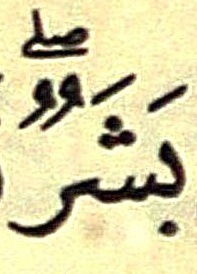 بَشَرٌۖ